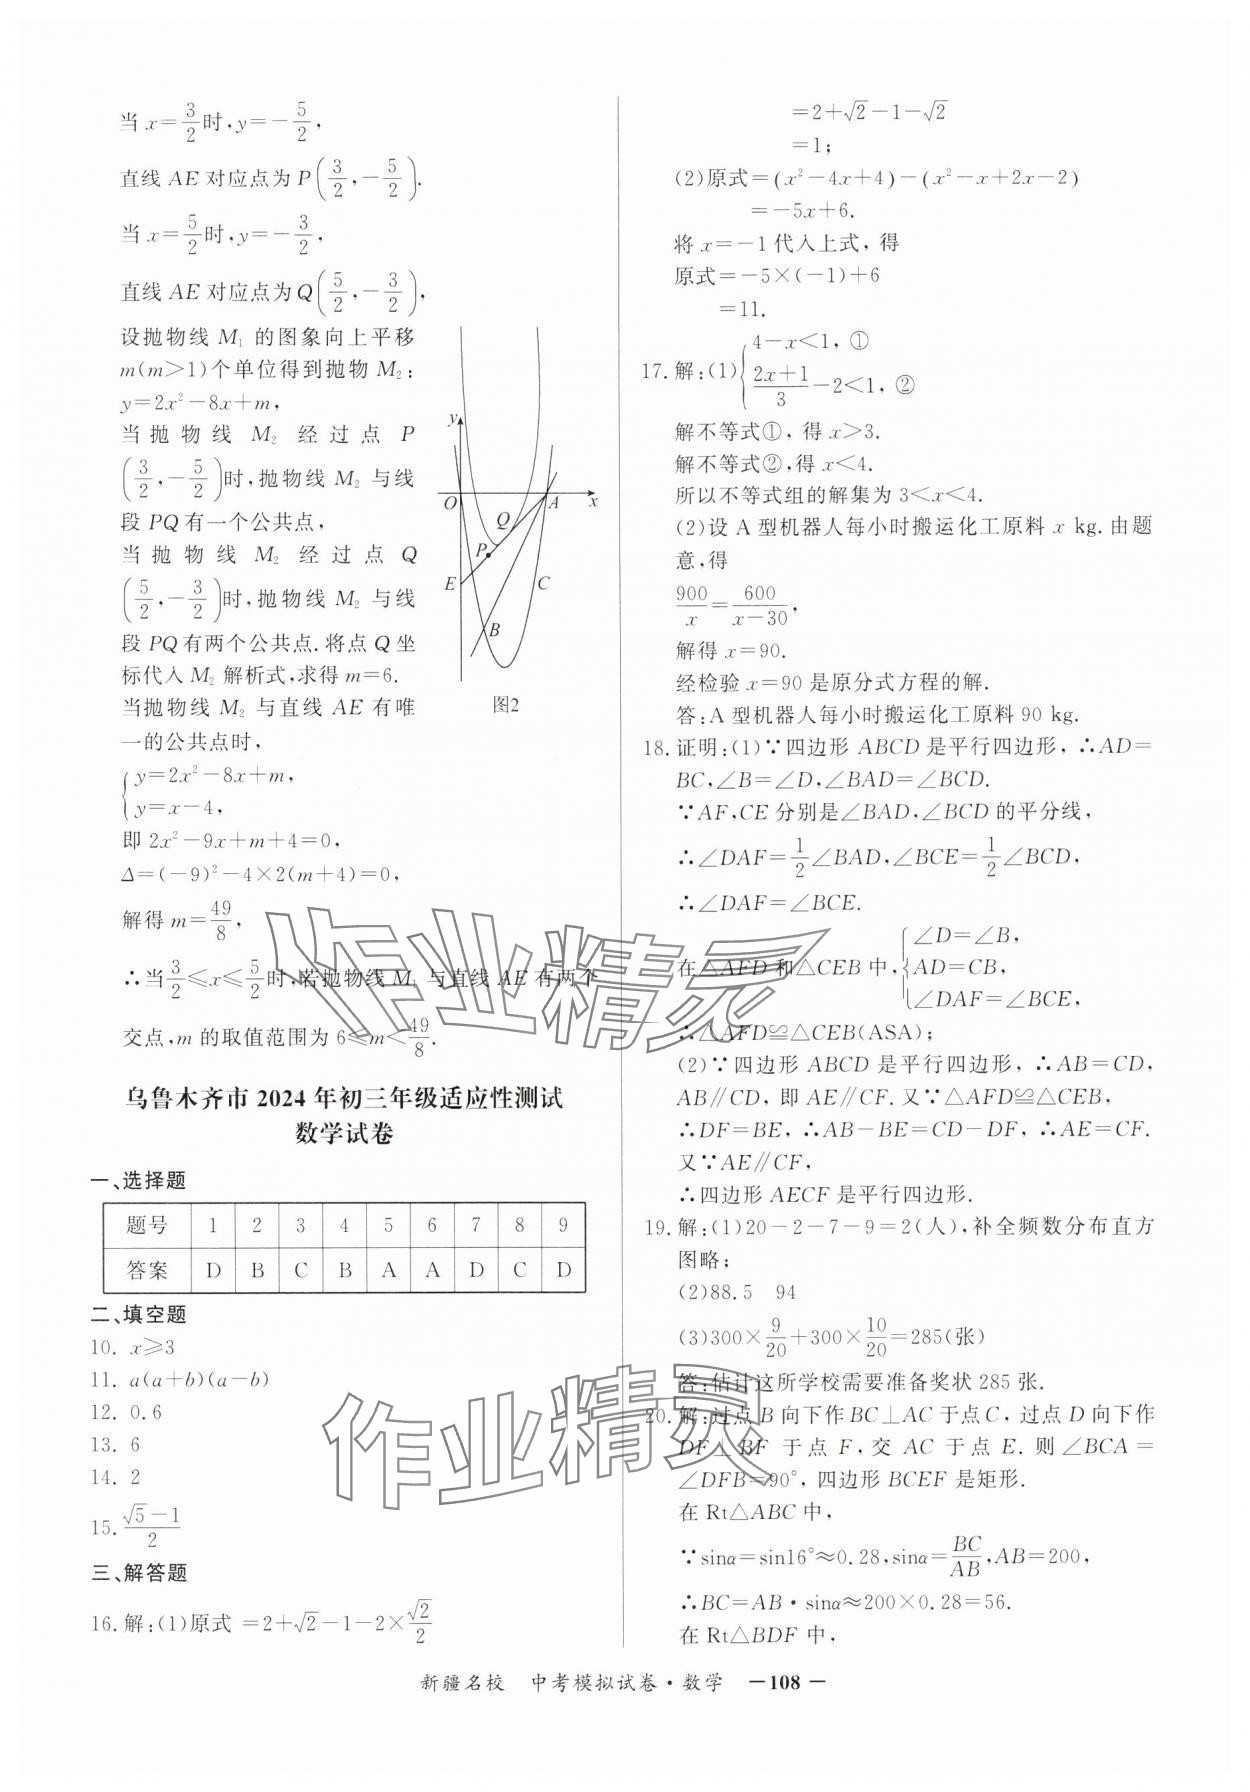 当 x=3/2时,y=-5/2,
直线 AE 对应点为 P(3/2,-5/2).
当 x=5/2时,y=-3/2,
直线 AE 对应点为 Q(5/2,-3/2),
设抛物线 M₁ 的图象向上平移
m(m>1)个单位得到抛物 M₂:
y=2x²-8x+m,
当 抛 物 线 M₂ 经 过 点 P
(3/2,-5/2)时,抛物线 M₂ 与线
段 PQ 有一个公共点,
当 抛 物 线 M₂ 经 过 点 Q
(5/2,-3/2)时,抛物线 M₂ 与线
段 PQ 有两个公共点.将点 Q 坐
标代入 M₂ 解析式,求得 m=6.
当抛物线 M₂ 与直线 AE 有唯
一的公共点时,
{y=2x²-8x+m,
y=x-4,
即 2x²-9x+m+4=0,
Δ=(-9)²-4×2(m+4)=0,
解得 m=49/8,
∴当3/2≤x≤5/2时,若抛物线 M₁ 与直线 AE 有两个
交点,m 的取值范围为 6≤m<49/8.
y
O
A
x
Q
P
E
C
B
图2
乌鲁木齐市 2024 年初三年级适应性测试
数学试卷
一、选择题
题号 1 2 3 4 5 6 7 8 9
答案 D B C B A A D C D
二、填空题
10. x≥3
11. a(a+b)(a-b)
12. 0.6
13. 6
14. 2
15. (√5-1)/2
三、解答题
16. 解:(1)原式 =2+√2-1-2×√2/2
=2+√2-1-√2
=1;
(2)原式=(x²-4x+4)-(x²-x+2x-2)
=-5x+6.
将 x=-1 代入上式, 得
原式=-5×(-1)+6
=11.
17. 解:(1){4-x<1, ①
(2x+1)/3-2<1, ②
解不等式①, 得 x>3.
解不等式②,得 x<4.
所以不等式组的解集为 3<x<4.
(2)设 A 型机器人每小时搬运化工原料 x kg.由题
意,得
900/x=600/(x-30),
解得 x=90.
经检验 x=90 是原分式方程的解.
答:A 型机器人每小时搬运化工原料 90 kg.
18. 证明:(1)∵四边形 ABCD 是平行四边形, ∴AD=
BC,∠B=∠D,∠BAD=∠BCD.
∵AF,CE 分别是∠BAD,∠BCD 的平分线,
∴∠DAF=1/2∠BAD,∠BCE=1/2∠BCD,
∴∠DAF=∠BCE.
在△AFD 和△CEB 中,{∠D=∠B,
AD=CB,
∠DAF=∠BCE,
∴△AFD≌△CEB(ASA);
(2)∵四边形 ABCD 是平行四边形, ∴AB=CD,
AB∥CD, 即 AE∥CF. 又∵△AFD≌△CEB,
∴DF=BE, ∴AB-BE=CD-DF, ∴AE=CF.
又∵AE∥CF,
∴四边形 AECF 是平行四边形.
19. 解:(1)20-2-7-9=2(人),补全频数分布直方
图略;
(2)88.5 94
(3)300×9/20+300×10/20=285(张)
答:估计这所学校需要准备奖状 285 张.
20. 解:过点 B 向下作 BC⊥AC 于点 C, 过点 D 向下作
DF⊥BF 于点 F, 交 AC 于点 E. 则 ∠BCA =
∠DFB=90°, 四边形 BCEF 是矩形.
在 Rt△ABC 中,
∵sinα=sin16°≈0.28,sinα=BC/AB,AB=200,
∴BC=AB·sinα≈200×0.28=56.
在 Rt△BDF 中,
新疆名校 中考模拟试卷·数学 —108—
作业精灵
作业精灵